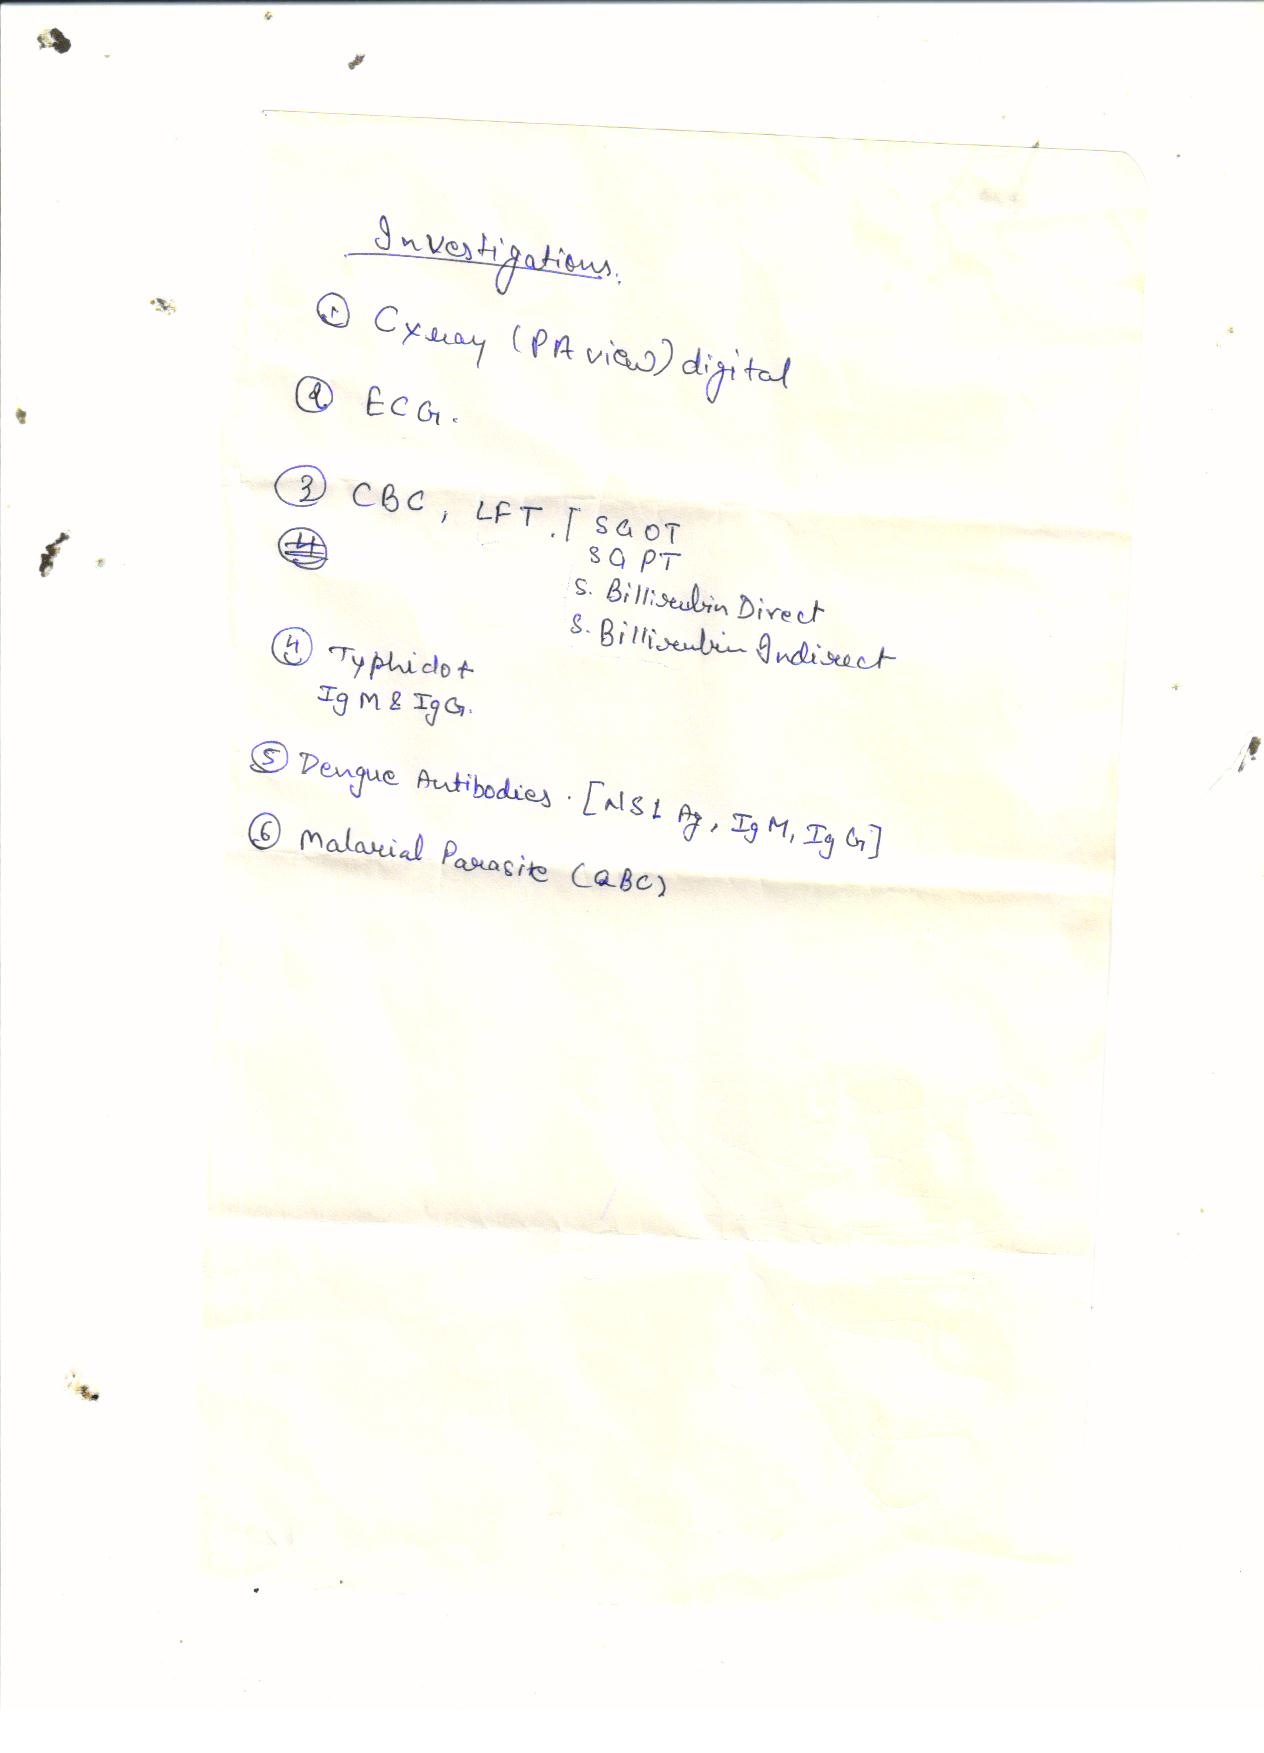 Investigations.
① Cxray (PA view) digital
② ECG.
③ CBC, LFT. [ SGOT
SGPT
S. Billirubin Direct
S. Billirubin Indirect
④ Typhidot
IgM & IgG.
⑤ Dengue Antibodies. [NS1 Ag, IgM, IgG]
⑥ Malarial Parasite (QBC)